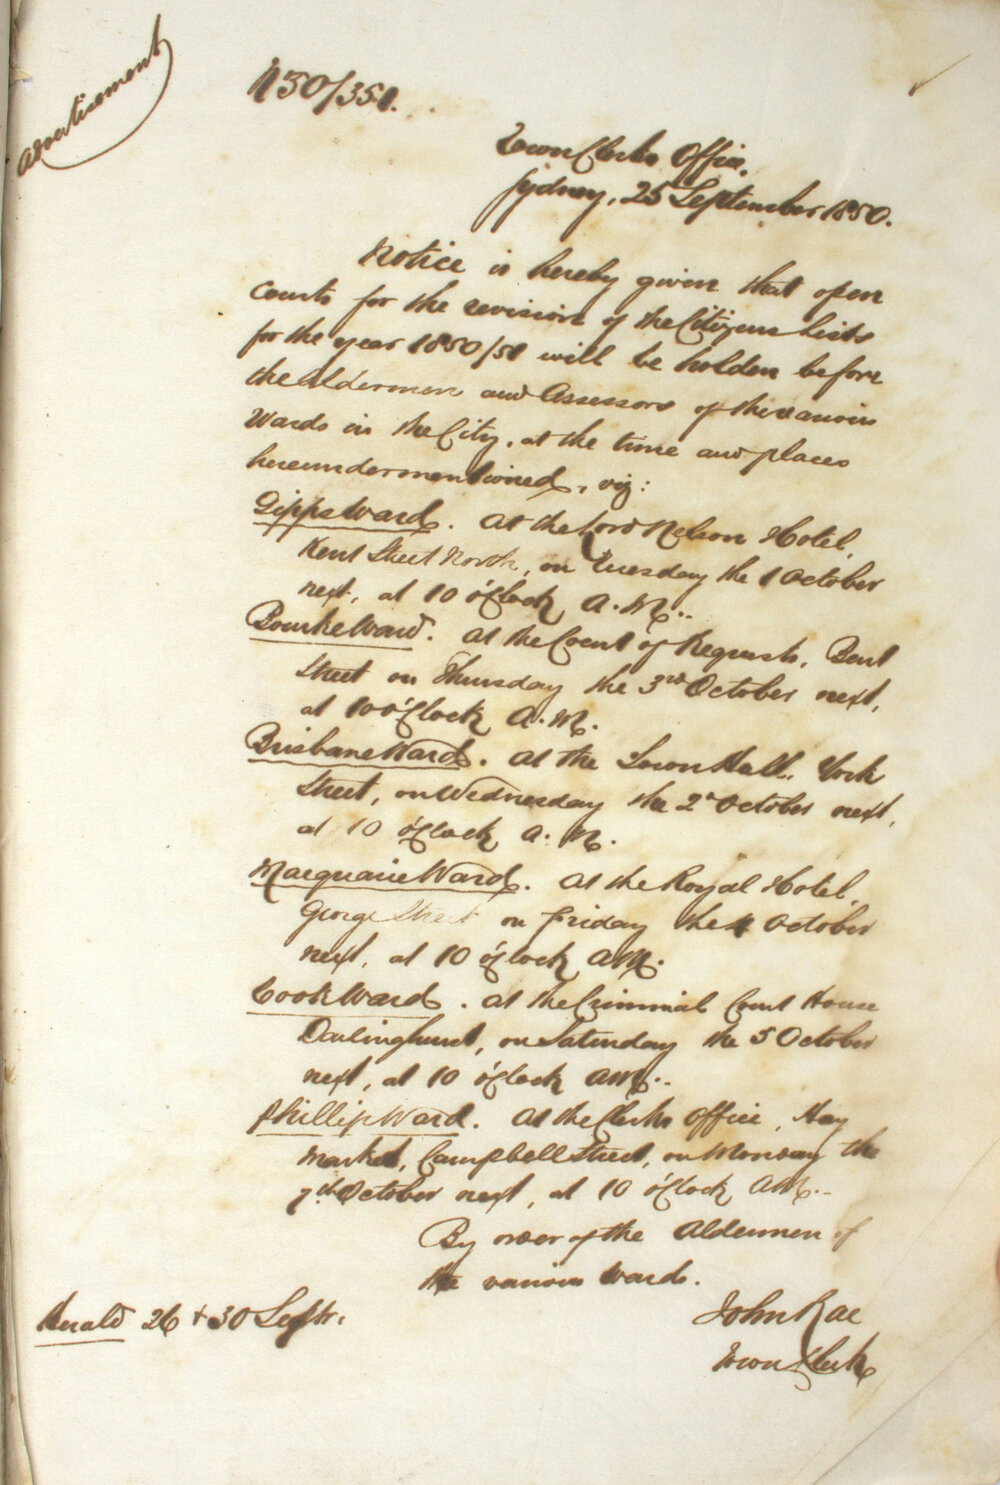 Advertisement
N 50/351.
Town Clerks Office,
Sydney, 25 September 1850.
Notice is hereby given that open
Courts for the revision of the Citizens Lists
for the year 1850/51 will be holden before
the Aldermen and Assessors of the various
Wards in the City, at the time and places
hereundermentioned, viz:
Gipps Ward. At the Lord Nelson Hotel,
Kent Street North, on Tuesday the 1 October
next, at 10 o'Clock A.M.
Bourke Ward. At the Court of Requests, Bent
Street on Thursday the 3rd October next,
at 10 o'Clock A.M.
Brisbane Ward. At the Town Hall, York
Street, on Wednesday the 2d October next,
at 10 o'Clock A.M.
Macquarie Ward. At the Royal Hotel,
George Street on Friday the 4 October
next, at 10 o'Clock AM.
Cook Ward. At the Criminal Court House
Darlinghurst, on Saturday the 5 October
next, at 10 o'Clock AM.
Phillip Ward. At the Clerks Office, Hay
Market, Campbell Street, on Monday the
7th October next, at 10 o'Clock AM.
By order of the Aldermen of
the various Wards.
John Rae
Town Clerk
Herald 26 + 30 Septr.